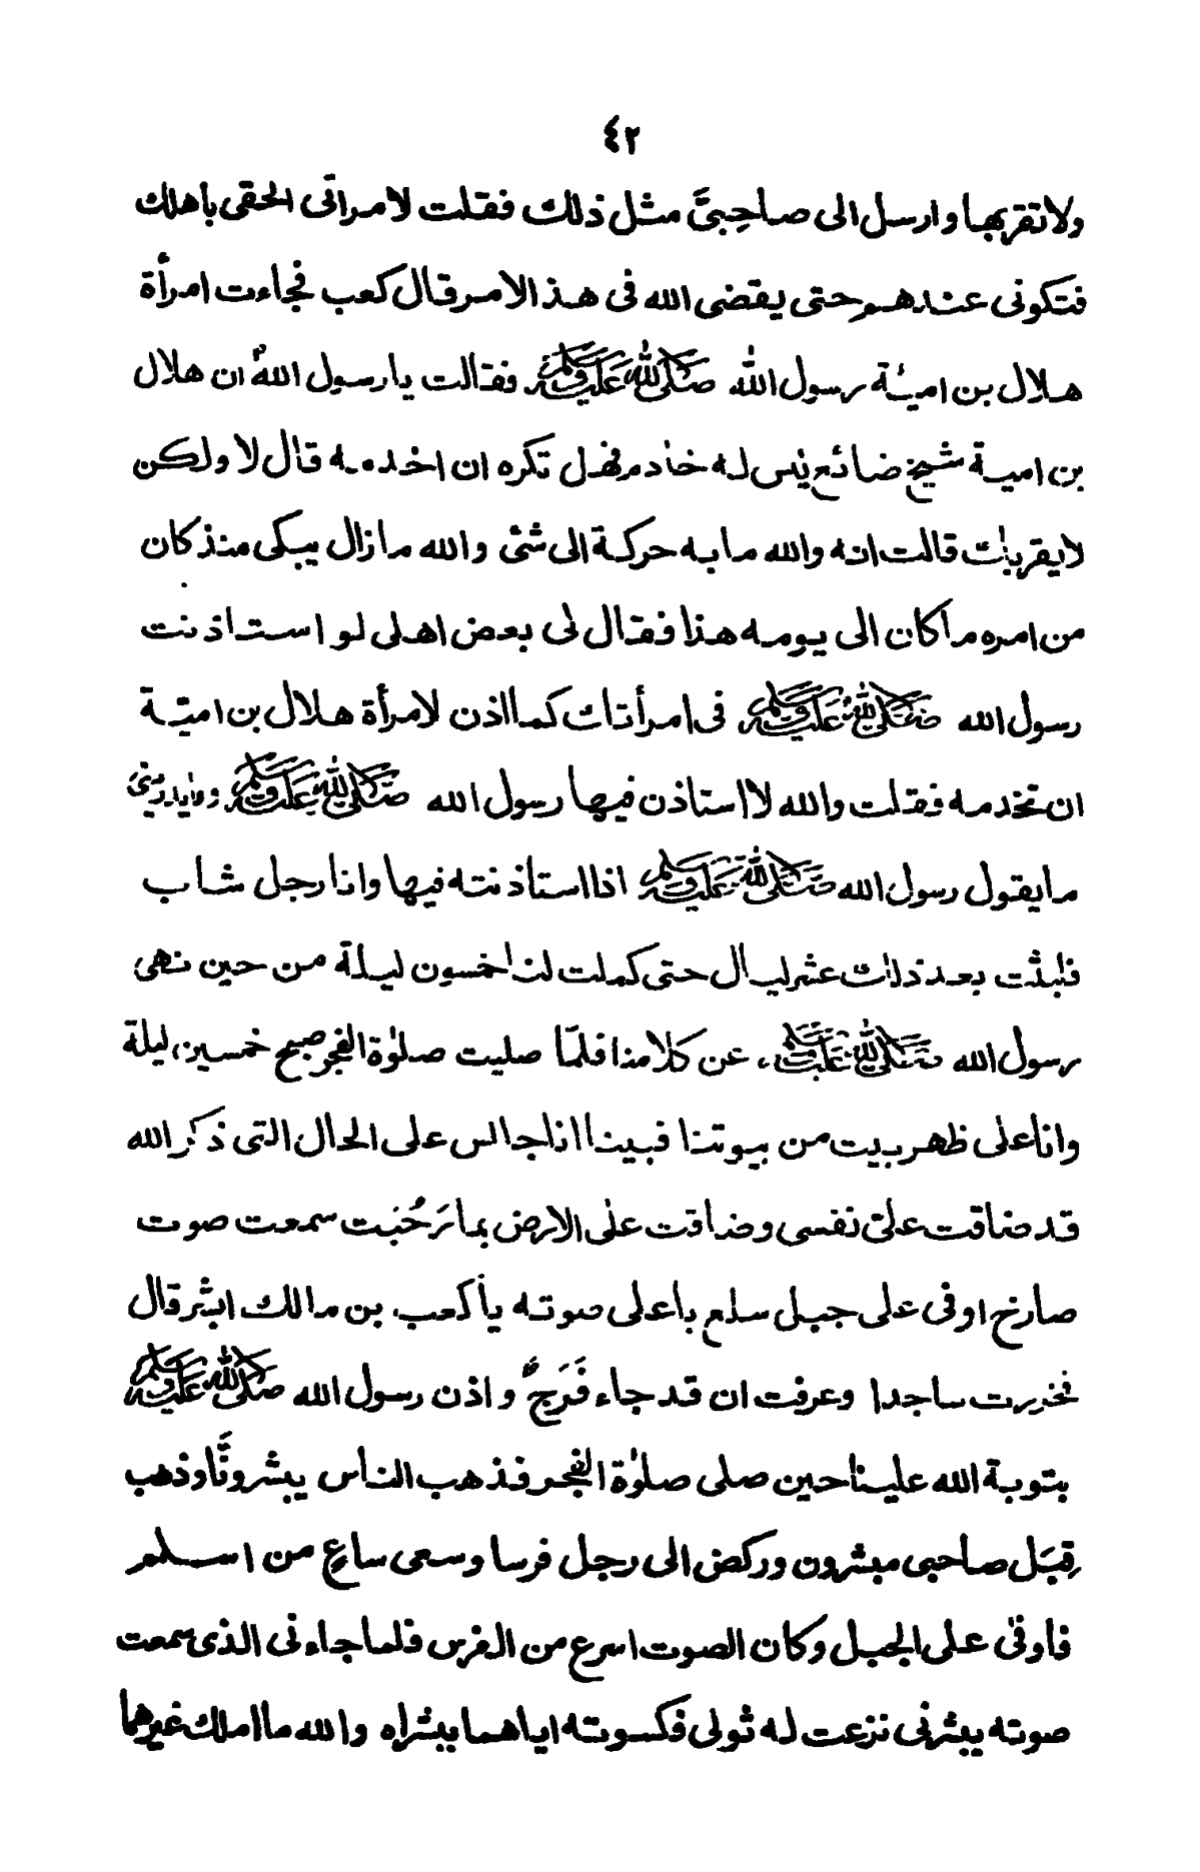 ٤٢
ولا تقربها وارسل الى صاحِبىَّ مثل ذلك فقلت لامراتى الحقى باهلك
فتكونى عندهم حتى يقضى الله فى هذا الامر قال كعب فجاءت امرأة
هلال بن امية رسول الله صلى الله عليه وسلم فقالت يا رسول الله ان هلال
بن امية شيخ ضائع ليس له خادم فهل تكره ان اخدمه قال لا ولكن
لا يقربك قالت انه والله ما به حركة الى شئ والله ما زال يبكى منذ كان
من امره ما كان الى يومه هذا فقال لى بعض اهلى لو استاذنت
رسول الله صلى الله عليه وسلم فى امرأتك كما اذن لامرأة هلال بن امية
ان تخدمه فقلت والله لا استاذن فيها رسول الله صلى الله عليه وسلم وما يدرينى
ما يقول رسول الله صلى الله عليه وسلم اذا استاذنته فيها وانا رجل شاب
فلبثت بعد ذلك عشر ليال حتى كملت لنا خمسون ليلة من حين نهى
رسول الله صلى الله عليه وسلم عن كلامنا فلمّا صليت صلوٰة الفجر صبح خمسين ليلة
وانا على ظهر بيت من بيوتنا فبينا انا جالس على الحال التى ذكر الله
قد ضاقت علىّ نفسى وضاقت على الارض بما رَحُبَت سمعت صوت
صارخ اوفى على جبل سلع باعلى صوته يا كعب بن مالك ابشر قال
فخررت ساجدا وعرفت ان قد جاء فَرَجٌ واذن رسول الله صلى الله عليه وسلم
بتوبة الله علينا حين صلى صلوٰة الفجر فذهب الناس يبشرونَّا وذهب
قِبَل صاحبى مبشرون وركض الى رجل فرسا وسعى ساعٍ من اسلم
فاوفى على الجبل وكان الصوت اسرع من الفرس فلما جاءنى الذى سمعت
صوته يبشرنى نزعت له ثوبى فكسوته اياهما ببشراه والله ما املك غيرهما